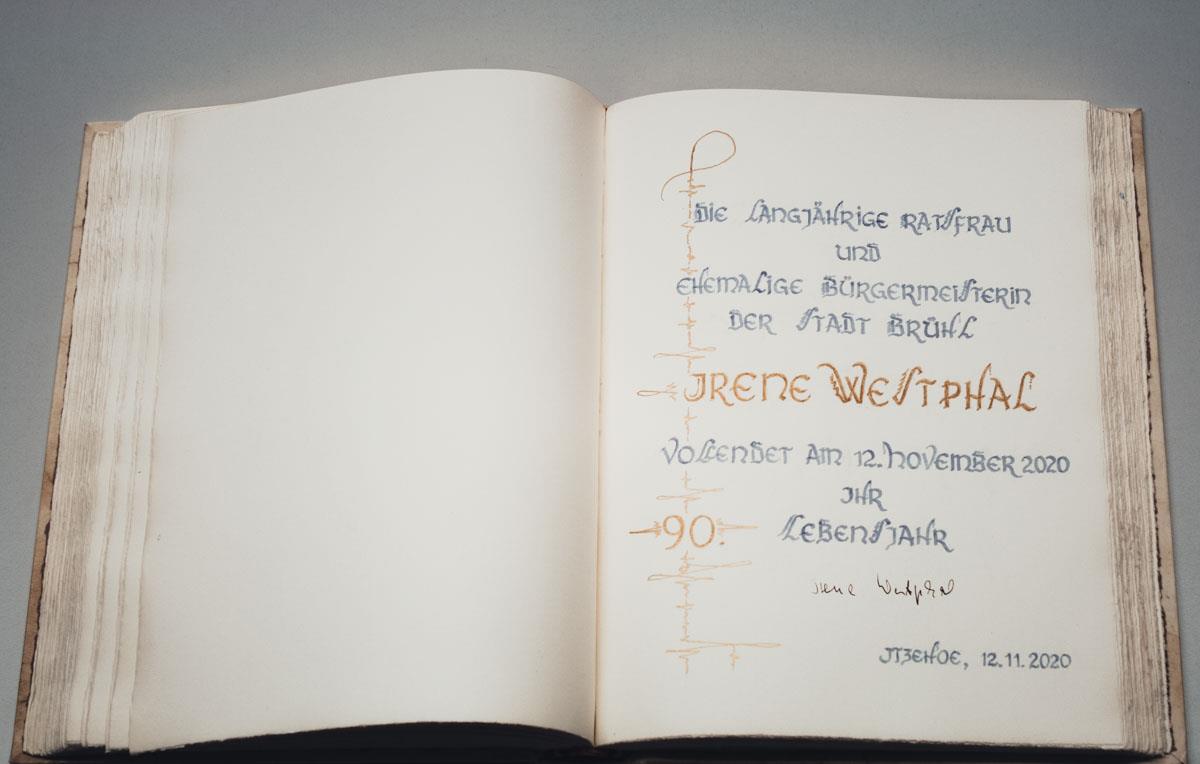 DIE LANGJÄHRIGE RATSFRAU
UND
EHEMALIGE BÜRGERMEISTERIN
DER STADT BRÜHL
IRENE WESTPHAL
VOLLENDET AM 12. NOVEMBER 2020
IHR
90. LEBENSJAHR
Irene Westphal
ITZEHOE, 12.11.2020